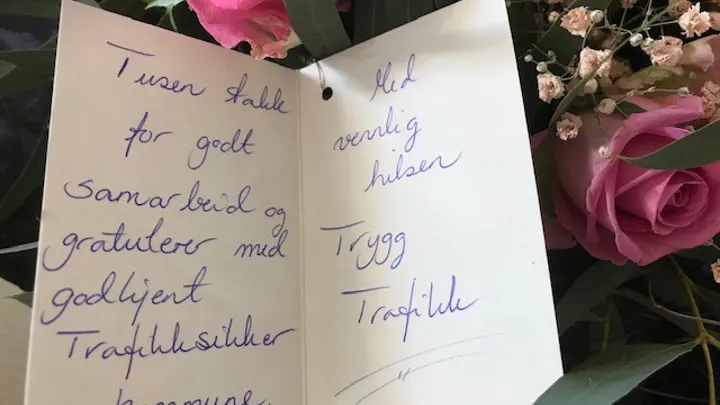 Tusen takk
for godt
samarbeid og
gratulerer med
godkjent
Trafikksikker
kommune.
Med
vennlig
hilsen
Trygg
Trafikk